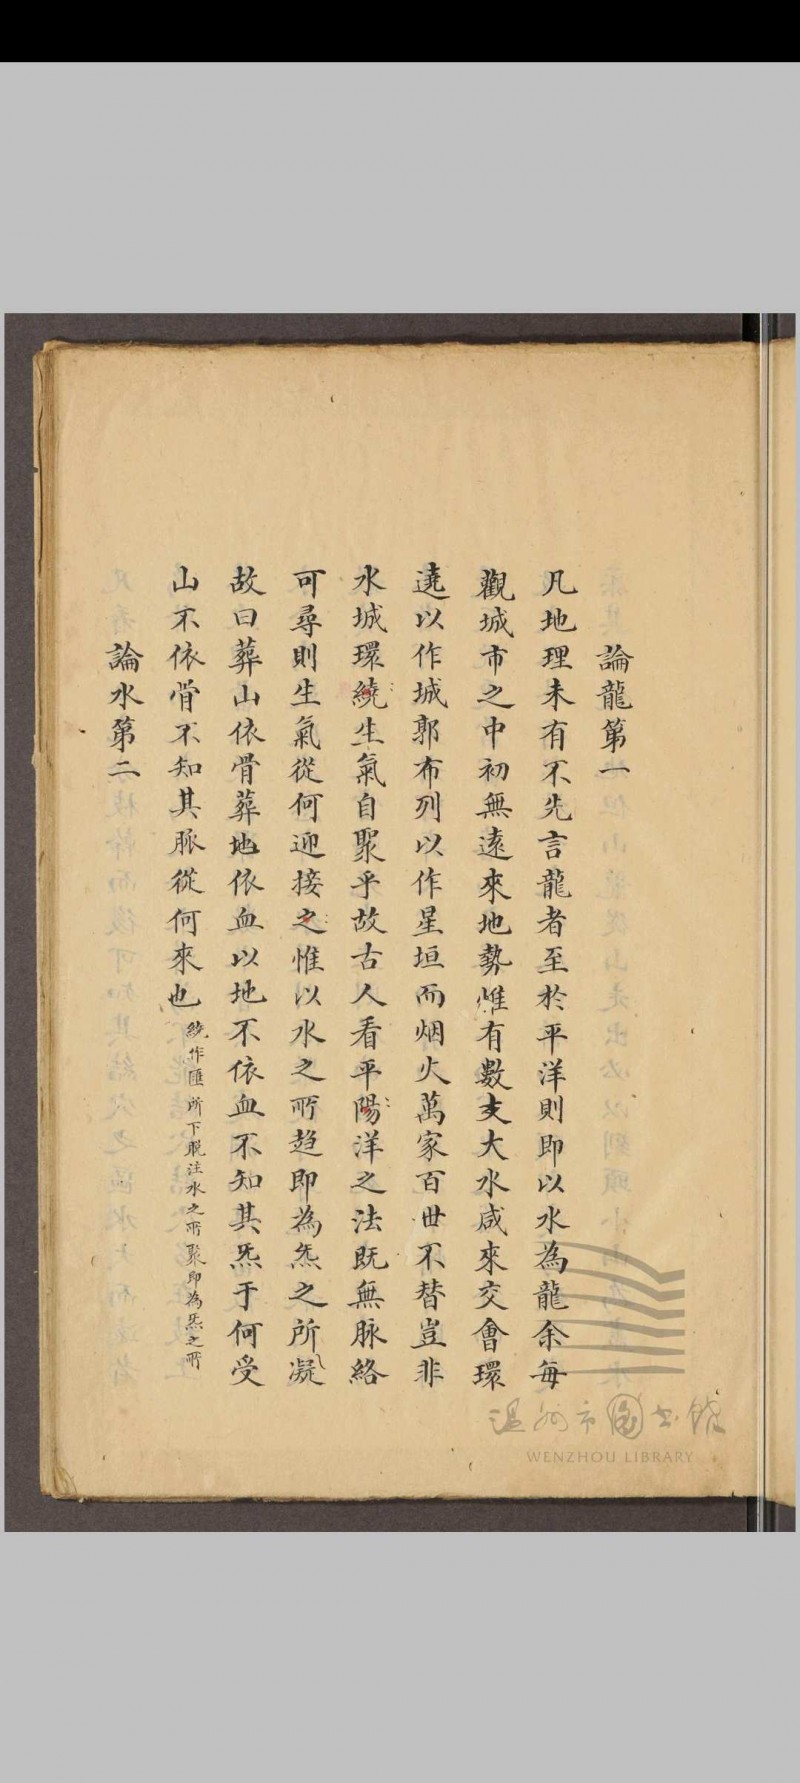 論龍第一
凡地理未有不先言龍者至於平洋則即以水為龍余每
觀城市之中初無遠來地勢惟有數支大水咸來交會環
遶以作城郭布列以作星垣而烟火萬家百世不替豈非
水城環繞生氣自聚乎故古人看平陽洋之法既無脉絡
可尋則生氣從何迎接之惟以水之所趋即為炁之所凝
故曰葬山依骨葬地依血以地不依血不知其炁于何受
山不依骨不知其脈從何來也
繞作匯 所下脫注水之所聚即為炁之所
論水第二
温州市图书馆
WENZHOU LIBRARY